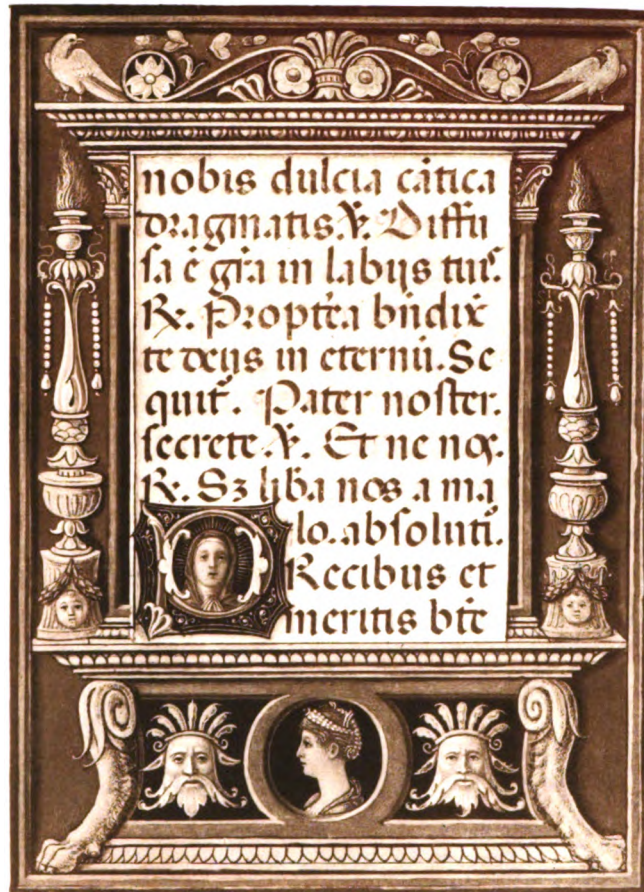 nobis dulcia cãtica
dragmatis. ℣. Diffu
sa ẽ gr̃a in labijs tuis.
℟. Propt̃ea bñdix̃
te deus in eternũ. Se
quit̃. Pater noster.
secrete. ℣. Et ne nos.
℟. Sꝫ lib̃a nos a ma
lo. absoluti.
Recibus et
meritis bt̃e